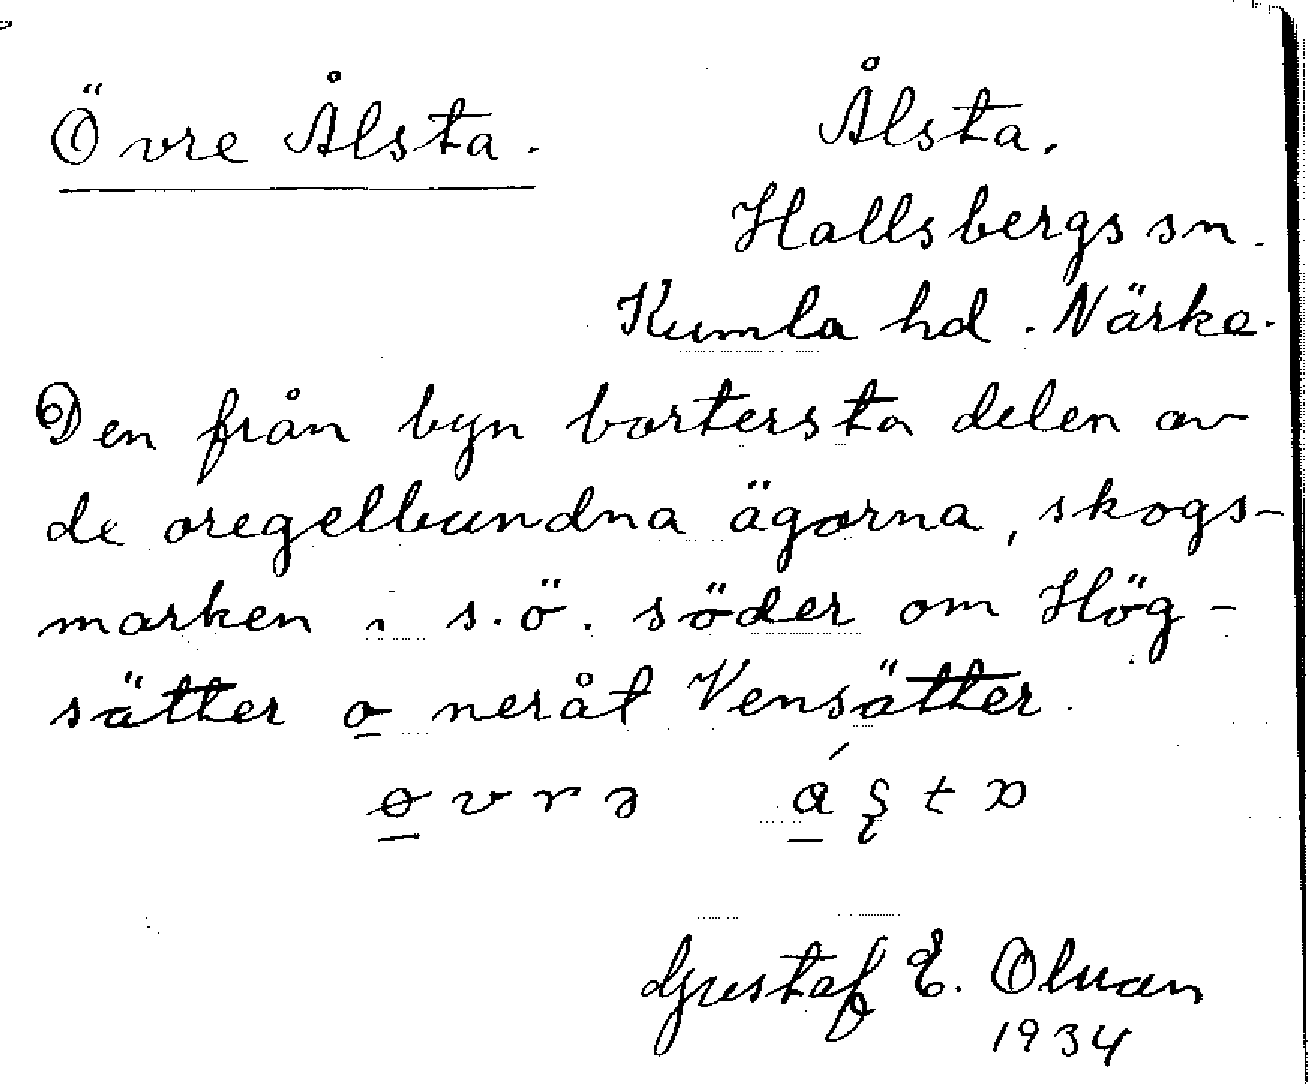 Övre Ålsta.
Ålsta.
Hallsbergs sn.
Kumla hd. Närke.
Den från byn bortersta delen av
de oregelbundna ägorna, skogs-
marken i s.ö. söder om Hög-
sätter o neråt Vensätter.
Gustaf E.
1934